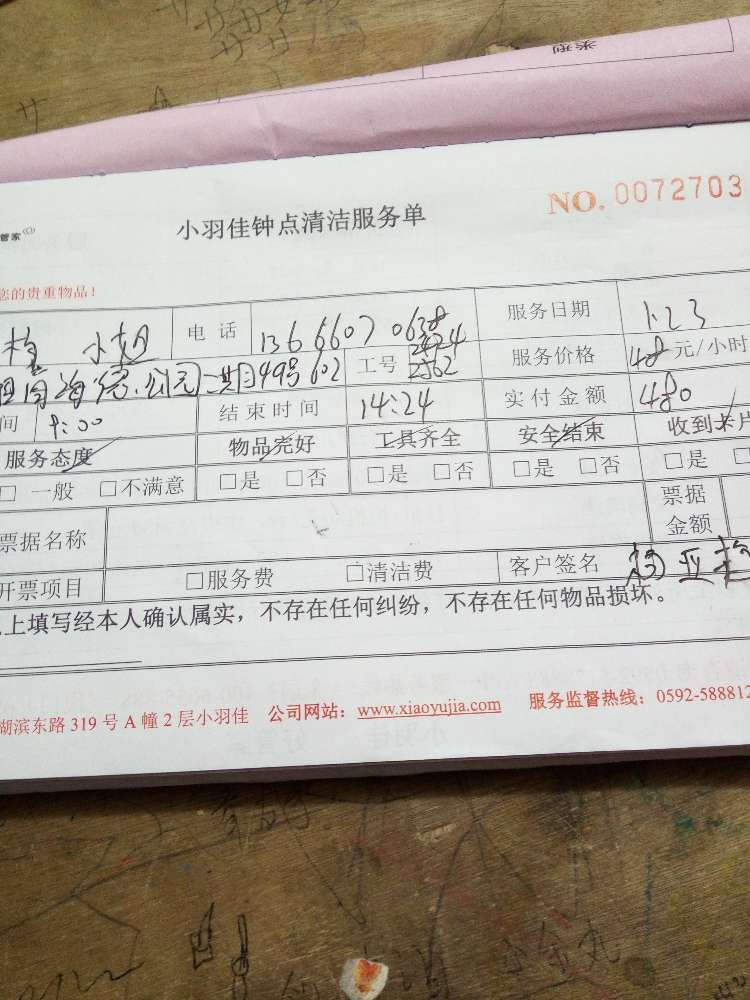 类型
NO. 0072703
管家
小羽佳钟点清洁服务单
您的贵重物品！
小姐 电话 13666070638 服务日期 1.23
海德公园二期49号602 工号 2562 服务价格 48元/小时
间 9:00 结束时间 14:24 实付金额 480
服务态度 物品完好 工具齐全 安全结束 收到卡片
□ 一般 □不满意 □是 □否 □是 □否 □是 □否 □是
票据名称 票据金额
开票项目 □服务费 □清洁费 客户签名 杨亚
上填写经本人确认属实，不存在任何纠纷，不存在任何物品损坏。
湖滨东路 319 号 A 幢 2 层小羽佳 公司网站：www.xiaoyujia.com 服务监督热线：0592-588812